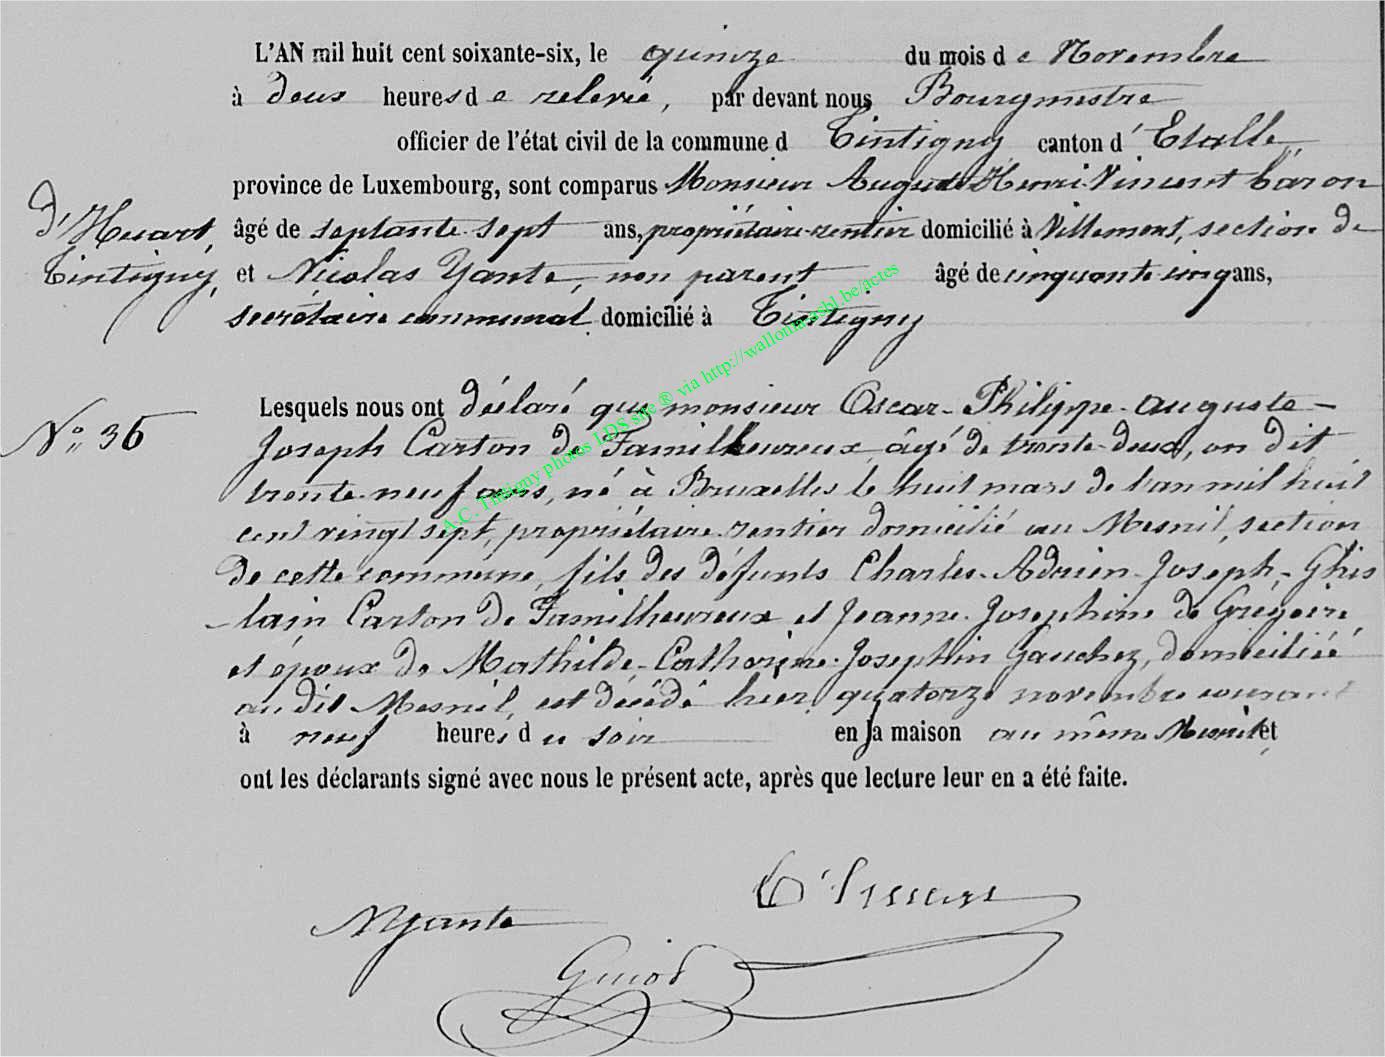 L'AN mil huit cent soixante-six, le quinze du mois de Novembre
à deux heures de relevée, par devant nous Bourgmestre
officier de l'état civil de la commune d Tintigny canton d'Etalle,
province de Luxembourg, sont comparus Monsieur Auguste Henri Vincent baron
d'Huart,
âgé de septante sept ans, propriétaire-rentier domicilié à Villemont, section de
Tintigny,
et Nicolas Yante, non parent âgé de cinquante cinq ans,
secrétaire communal domicilié à Tintigny
N° 36
Lesquels nous ont déclaré que monsieur Oscar-Philippe-auguste-
Joseph Carton de Familheureux, âgé de trente-deux, on dit
trente-neuf ans, né à Bruxelles le huit mars de l'an mil huit
cent vingt sept, propriétaire-rentier domicilié au Mesnil, section
de cette commune, fils des défunts Charles-Adrien-Joseph-Ghis
-lain Carton de Familheureux et Jeanne-Josephine de Grégoire
et époux de Mathilde-Catherine-Josephin Gauchez, domiciliée
au dit Mesnil, est décédé hier, quatorze novembre courant
à neuf heures du soir en la maison au même Mesnil et
ont les déclarants signé avec nous le présent acte, après que lecture leur en a été faite.
NYante
B d'Huart
Guiot
A.C. Tintigny photos LDS site ® via http://wallonia-asbl.be/actes